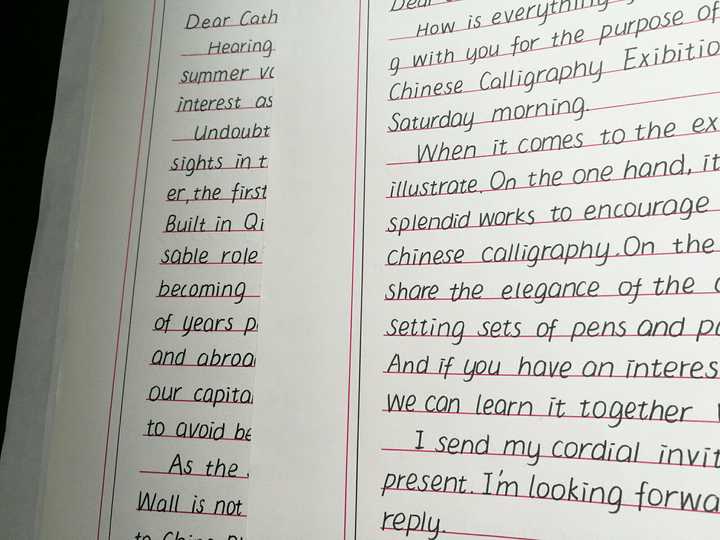 Dear Cath
Hearing
summer
interest as
Undoubt
sights in t
er, the first
Built in Qi
sable role
becoming
of years p
and abroa
our capita
to avoid be
As the
Wall is not
to China
Dear
How is everything
g with you for the purpose of
Chinese Calligraphy Exibitio
Saturday morning.
When it comes to the ex
illustrate. On the one hand, it
splendid works to encourage
chinese calligraphy. On the
share the elegance of the
setting sets of pens and pa
And if you have an interes
we can learn it together
I send my cordial invit
present. I'm looking forwa
reply.